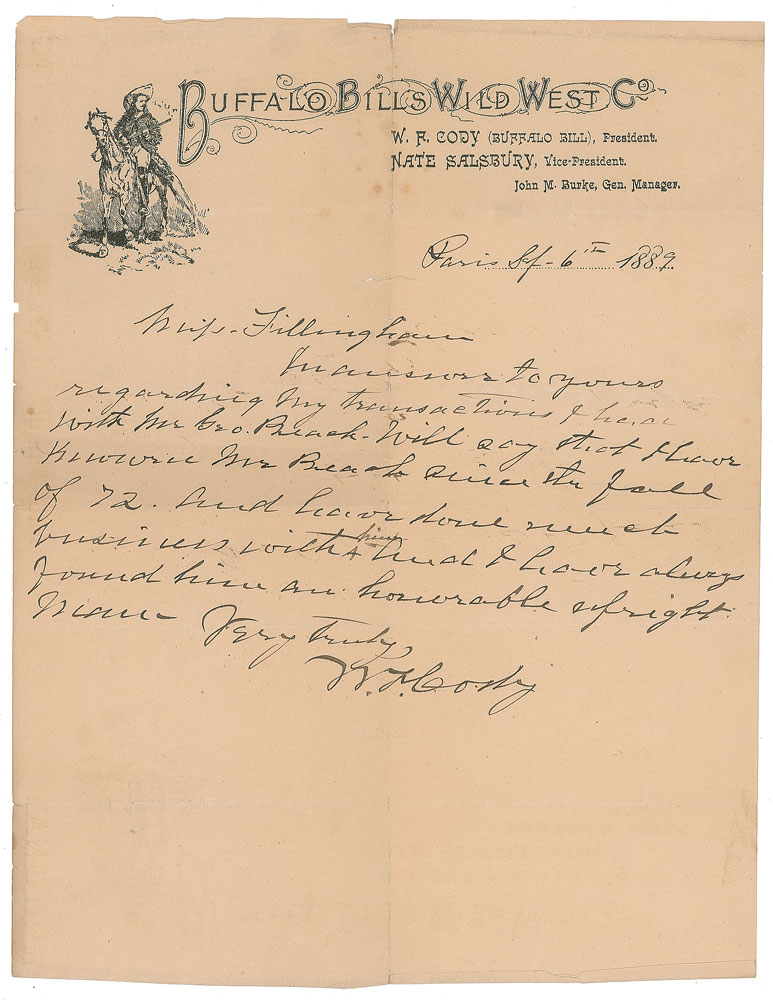 BUFFALO BILLS WILD WEST Co
W. F. CODY (BUFFALO BILL), President.
NATE SALSBURY, Vice-President.
John M. Burke, Gen. Manager.
Paris Sep. 6th 1889.
Miss. Fillingham
In answer to yours
regarding my transactions I have
with Mr Geo. Beach. Will say that I have
Known Mr Beach since the fall
of 72. And have done much
business with him And I have always
found him an honorable upright
Man–
Very Truly
W. F. Cody